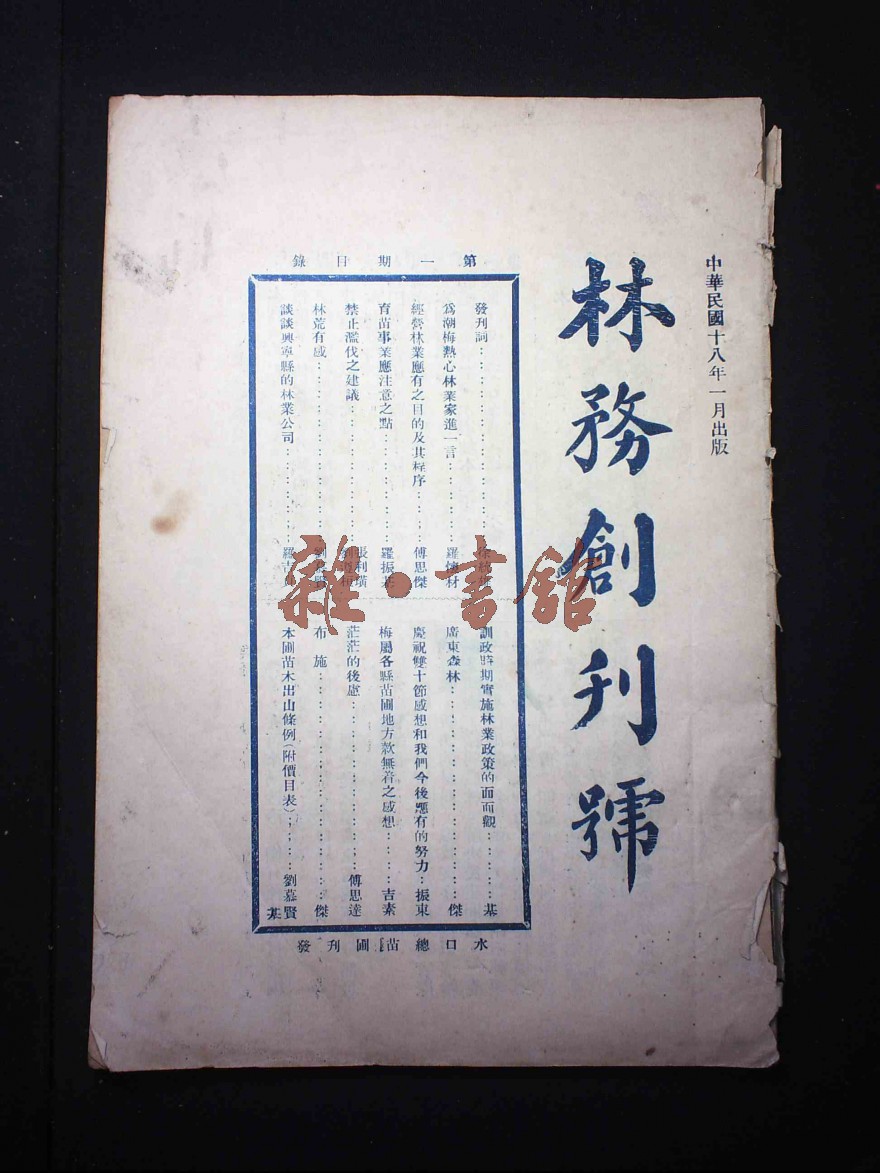 中華民國十八年一月出版
林務創刊號
第一期目錄
發刊詞
為潮梅熱心林業家進一言 羅懷材
經營林業應有之目的及其程序 傅思傑
育苗事業應注意之點 羅振基
禁止濫伐之建議 張利璜
林荒有感
談談興寧縣的林業公司 羅吉
訓政時期實施林業政策的面面觀 基
廣東森林 傑
慶祝雙十節感想和我們今後應有的努力 振東
梅屬各縣苗圃地方款無着之感想 吉素
茫茫的後慮 傅思達
布施 傑
本圃苗木出山條例(附價目表) 劉慕賢 基
水口總苗圃刊發
雜·書館